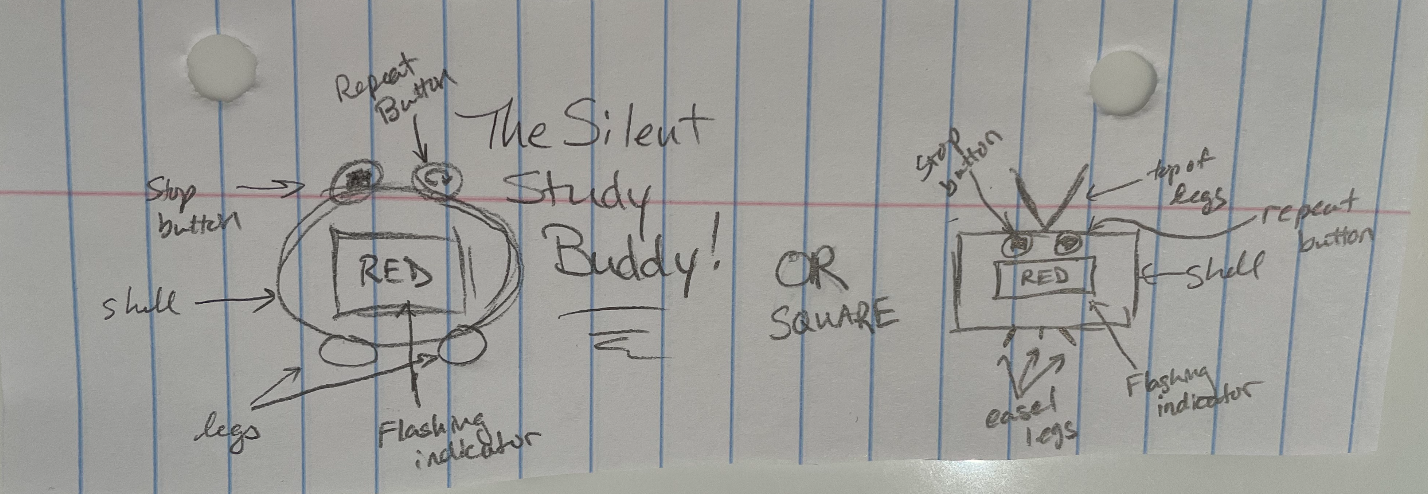 Repeat
Button
The Silent
Study
Buddy!
Stop
button
RED
shell
legs
Flashing
indicator
OR
SQUARE
Stop
button
top of
legs
repeat
button
RED
shell
easel
legs
Flashing
indicator